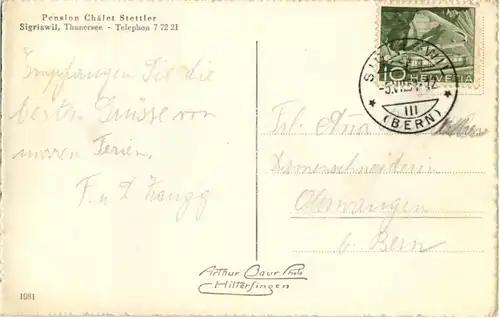 Pension Châlet Stettler
Sigriswil, Thunersee - Telephon 7 72 21
Empfangen Sie die
besten Grüsse von
unseren Ferien.
F. u. L. Zaugg
10 HELVETIA
III
(BERN)
Frl. Anna
Damenschneiderin
Oberwangen
b. Bern
Arthur Baur Photo
Hilterfingen
1981